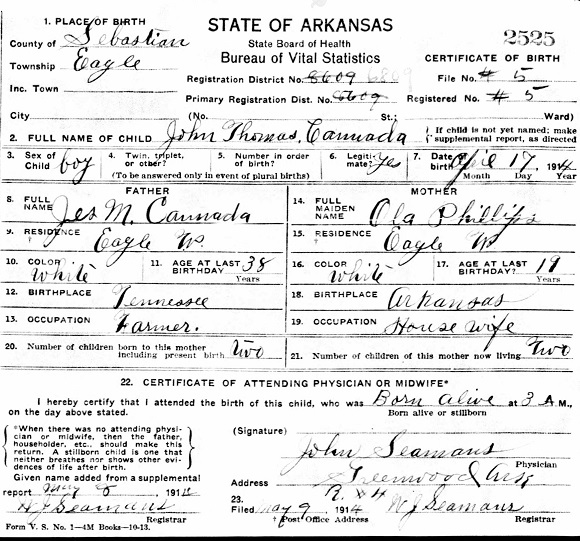 1. PLACE OF BIRTH
STATE OF ARKANSAS
County of Sebastian
State Board of Health
2525
Township Eagle
Bureau of Vital Statistics
CERTIFICATE OF BIRTH
Registration District No. 8609 6809
File No. # 5
Inc. Town
Primary Registration Dist. No. 8609
Registered No. # 5
City (No. St.; Ward)
2. FULL NAME OF CHILD John Thomas Cannada { If child is not yet named; make supplemental report, as directed
3. Sex of Child boy
4. Twin, triplet, or other?
5. Number in order of birth?
(To be answered only in event of plural births)
6. Legitimate? Yes
7. Date of birth April 17, 1914
Month Day Year
FATHER
MOTHER
8. FULL NAME Jes M. Cannada
14. FULL MAIDEN NAME Ola Phillips
9. RESIDENCE Eagle
15. RESIDENCE Eagle
10. COLOR White
11. AGE AT LAST BIRTHDAY 38 Years
16. COLOR White
17. AGE AT LAST BIRTHDAY? 19 Years
12. BIRTHPLACE Tennessee
18. BIRTHPLACE Arkansas
13. OCCUPATION Farmer.
19. OCCUPATION House wife
20. Number of children born to this mother including present birth two
21. Number of children of this mother now living Two
22. CERTIFICATE OF ATTENDING PHYSICIAN OR MIDWIFE*
I hereby certify that I attended the birth of this child, who was Born alive at 3 A M.,
on the day above stated.
Born alive or stillborn
*When there was no attending physician or midwife, then the father, householder, etc., should make this return. A stillborn child is one that neither breathes nor shows other evidences of life after birth.
(Signature) John Seamans
Physician
Address Greenwood Ark
R. #4
Given name added from a supplemental
report May 8 1914
W J Seamans
Registrar
23.
Filed May 9, 1914 W J Seamans
† Post Office Address Registrar
Form V. S. No. 1—4M Books—10-13.